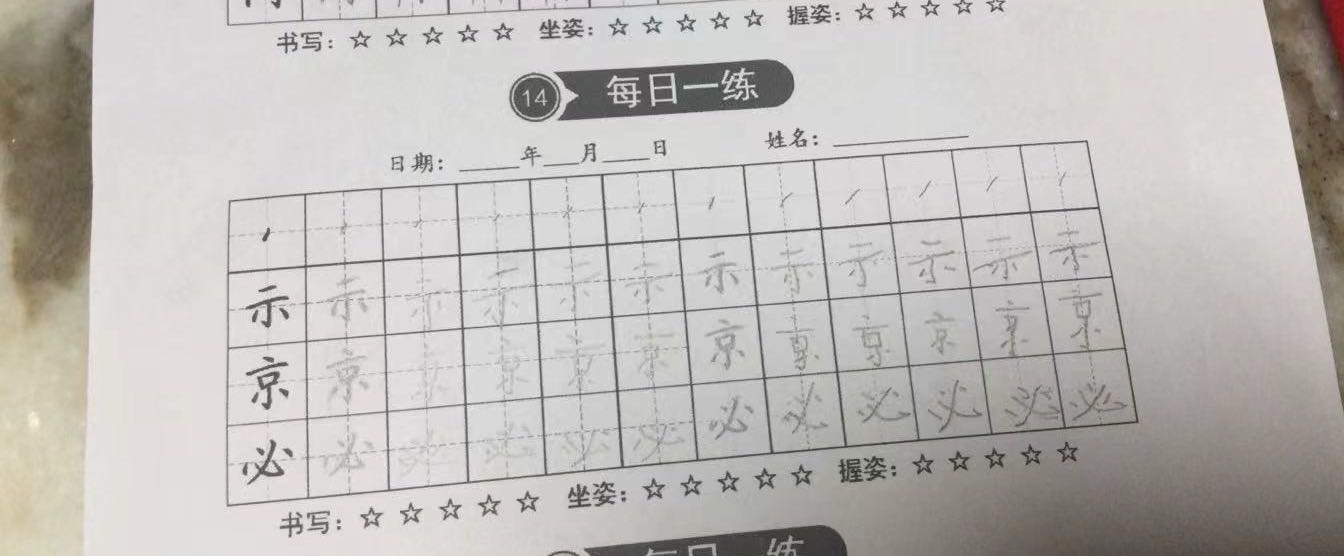 书写：☆ ☆ ☆ ☆ ☆ 坐姿：☆ ☆ ☆ ☆ ☆ 握姿：☆ ☆ ☆ ☆ ☆
14 每日一练
日期：_____年___月____日 姓名：__________
示 示 示 示 示 示 示 示 示 示 示 示
京 京 京 京 京 京 京 京 京 京 京 京
必 必 必 必 必 必 必 必 必 必 必 必
书写：☆ ☆ ☆ ☆ ☆ 坐姿：☆ ☆ ☆ ☆ ☆ 握姿：☆ ☆ ☆ ☆ ☆
每日一练